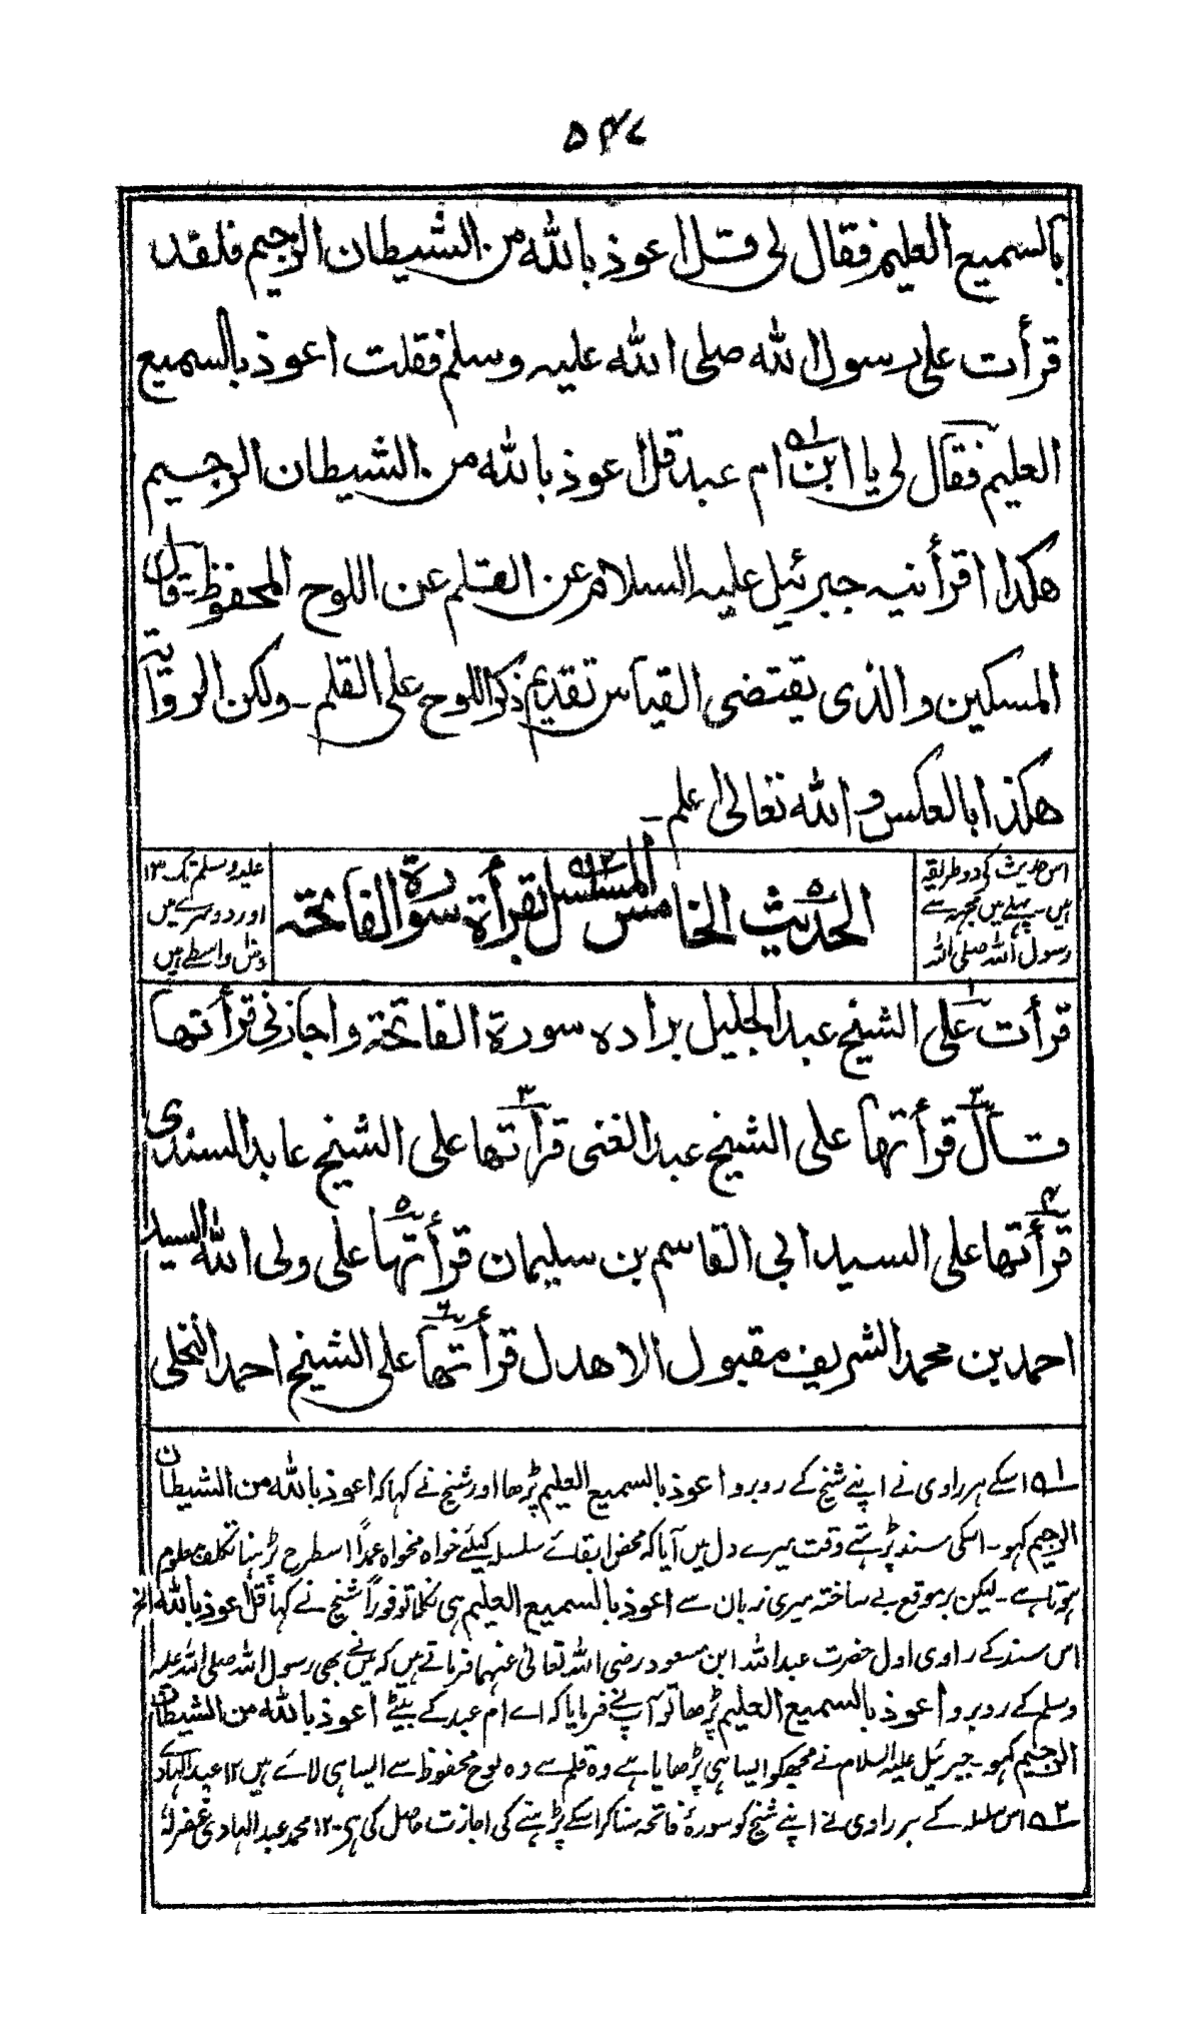 ۵۴۷
بالسميع العليم فقال لى قل اعوذ بالله من الشيطان الرجيم فلقد
قرأت على رسول الله صلى الله عليه وسلم فقلت اعوذ بالسميع
العليم فقال لى يا ابن ام عبد قل اعوذ بالله من الشيطان الرجيم
هكذا اقرأنيه جبرئيل عليه السلام عن القلم عن اللوح المحفوظ - قال
المسكين والذى يقتضى القياس تقديم ذكر اللوح على القلم - ولكن الرواية
هكذا بالعكس والله تعالى اعلم -
اس حدیث کی دو طریقہ
ہیں پہلے میں مجھ سے
رسول اللہ صلی اللہ
الحديث الخامس المسلسل بقرأة سورة الفاتحة
علیہ وسلم تک ۱۳
اور دوسرے میں
واسطے ہیں
قرأت على الشيخ عبد الجليل براده سورة الفاتحة واجازنى قرأتها
قال قرأتها على الشيخ عبد الغنى قرأتها على الشيخ عابد السندى
قرأتها على السيد ابى القاسم بن سليمان قرأتها على ولى الله السيد
احمد بن محمد الشريف مقبول الاهدل قرأتها على الشيخ احمد النخلى
۱ اسکے ہر راوی نے اپنے شیخ کے روبرو اعوذ بالسمیع العلیم پڑھا اور شیخ نے کہا کہ اعوذ باللہ من الشیطان
الرجیم کہو۔ اسکی سند پڑہتے وقت میرے دل میں آیا کہ محض ابقائے سلسلہ کیلئے خواہ مخواہ عمداً اسطرح پڑہنا تکلف معلوم
ہوتا ہے۔ لیکن بر موقع بے ساختہ میری زبان سے اعوذ بالسمیع العلیم ہی نکلا تو فوراً شیخ نے کہا قل اعوذ باللہ الخ
اس سند کے راوی اول حضرت عبد اللہ ابن مسعود رضی اللہ تعالیٰ عنہما فرماتے ہیں کہ مینے بھی رسول اللہ صلی اللہ علیہ
وسلم کے روبرو اعوذ بالسمیع العلیم پڑھا تو آپنے فرمایا کہ اے ام عبد کے بیٹے اعوذ باللہ من الشیطان
الرجیم کہو۔ جبرئیل علیہ السلام نے مجھکو ایسا ہی پڑھایا ہے وہ قلم سے وہ لوح محفوظ سے ایسا ہی لائے ہیں ۱۲ عبد الہادی
۲ اس سلسلہ کے ہر راوی نے اپنے شیخ کو سورۂ فاتحہ سنا کر اسکے پڑہنے کی اجازت حاصل کی ہی ۱۲ محمد عبد الہادی غفرلہ